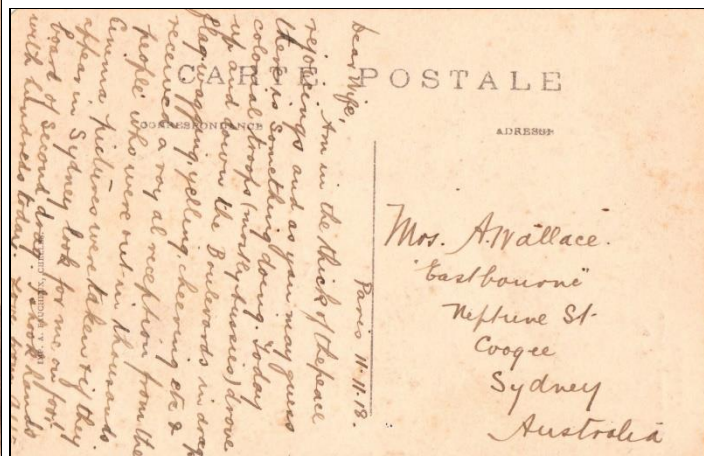 CARTE POSTALE
CORRESPONDANCE
ADRESSE
Paris 11.11.18.
Dear Wife,
Am in the thick of the peace
rejoicings and as you may guess
there is something doing. Today
colonial troops (mostly Aussies) drove
up and down the Boulevards in drags
flag wagging, yelling, cheering etc &
received a royal reception from the
people who were out in thousands
Cinema pictures were taken & if they
appear in Sydney look for me on foot
board of second drag. I shook hands
with hundreds today.
Mrs. A. Wallace.
"Eastbourne"
Neptune St.
Coogee
Sydney
Australia